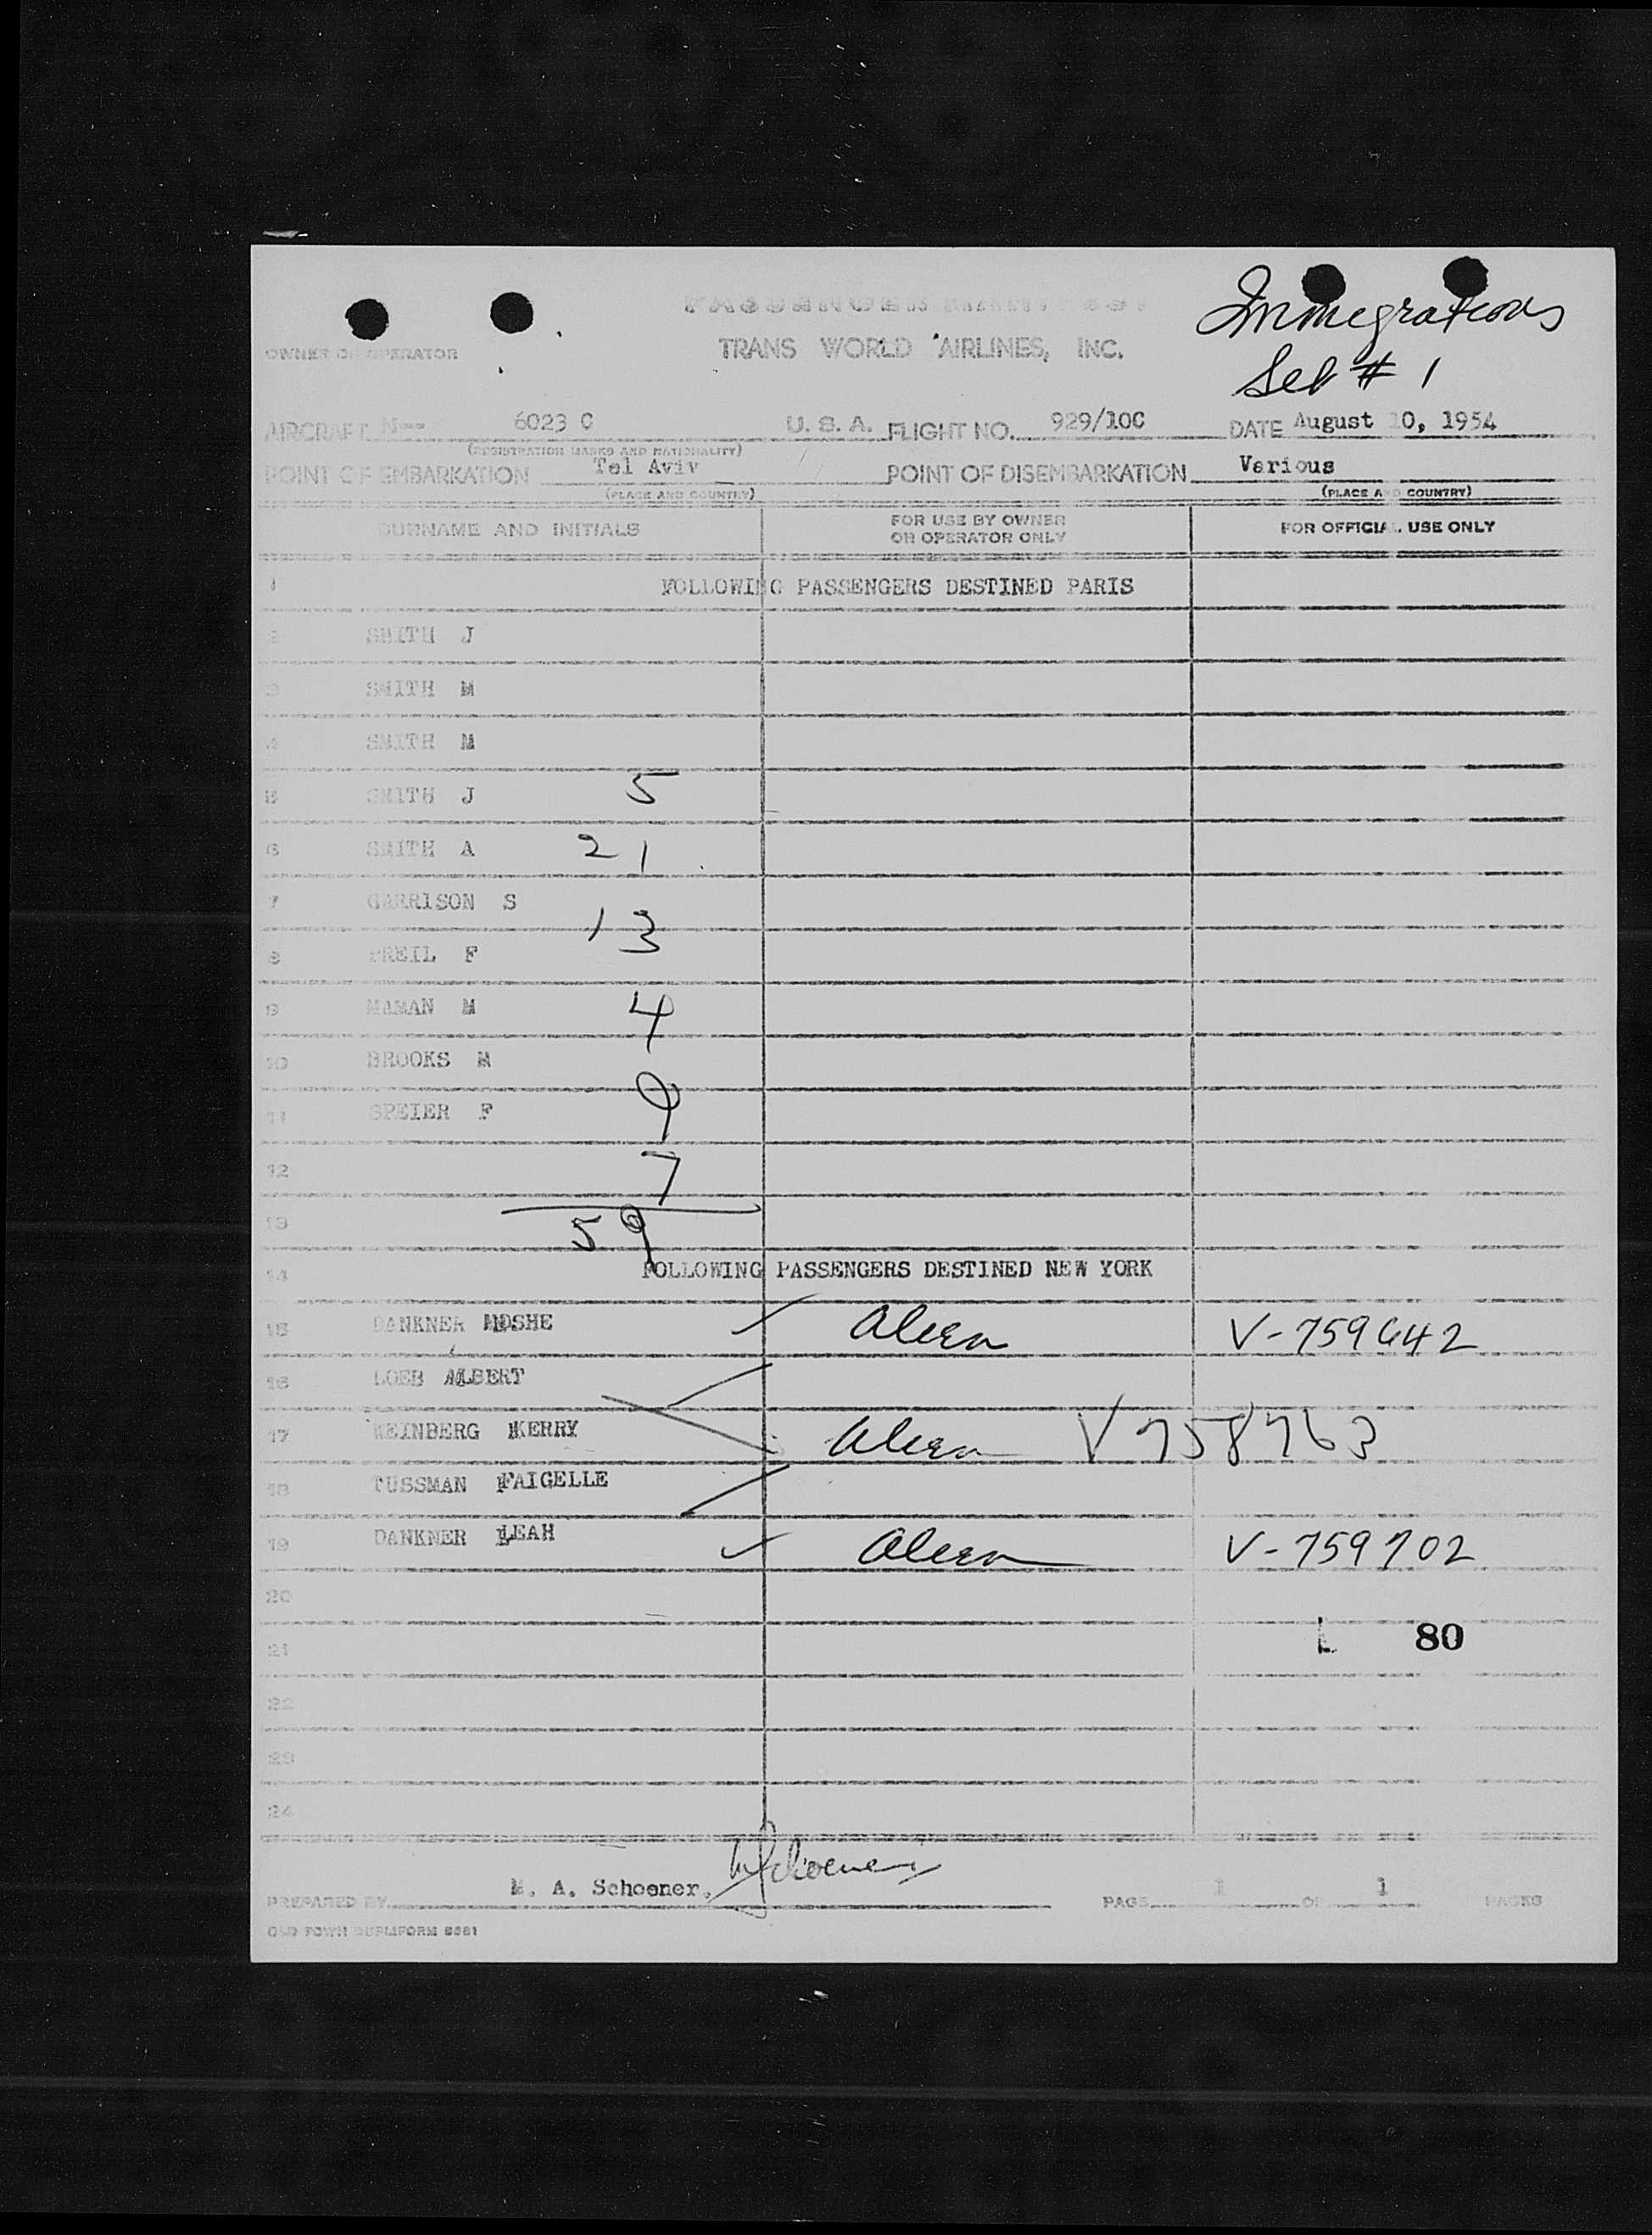 PASSENGER MANIFEST
Immigrations
OWNER OR OPERATOR TRANS WORLD AIRLINES, INC.
Set # 1
AIRCRAFT N-- 6023 C U. S. A. FLIGHT NO. 929/10C DATE August 10, 1954
(REGISTRATION MARKS AND NATIONALITY)
POINT OF EMBARKATION Tel Aviv POINT OF DISEMBARKATION Various
(PLACE AND COUNTRY) (PLACE AND COUNTRY)
SURNAME AND INITIALS FOR USE BY OWNER OR OPERATOR ONLY FOR OFFICIAL USE ONLY
1 FOLLOWING PASSENGERS DESTINED PARIS
2 SMITH J
3 SMITH M
4 SMITH M
5 SMITH J 5
6 SMITH A 21
7 GARRISON S
13
8 PREIL F
9 MAMAN M 4
10 BROOKS M
11 SPEIER F 9
12 7
13 59
14 FOLLOWING PASSENGERS DESTINED NEW YORK
15 DANKNER MOSHE Alien V-759642
16 LOEB ALBERT
17 WEINBERG KERRY Alien V758763
18 TUSSMAN FAIGELLE
19 DANKNER LEAH Alien V-759702
20
21 L 80
22
23
24
PREPARED BY M. A. Schoener, PAGE 1 OF 1 PAGES
OLD TOWN DUPLIFORM